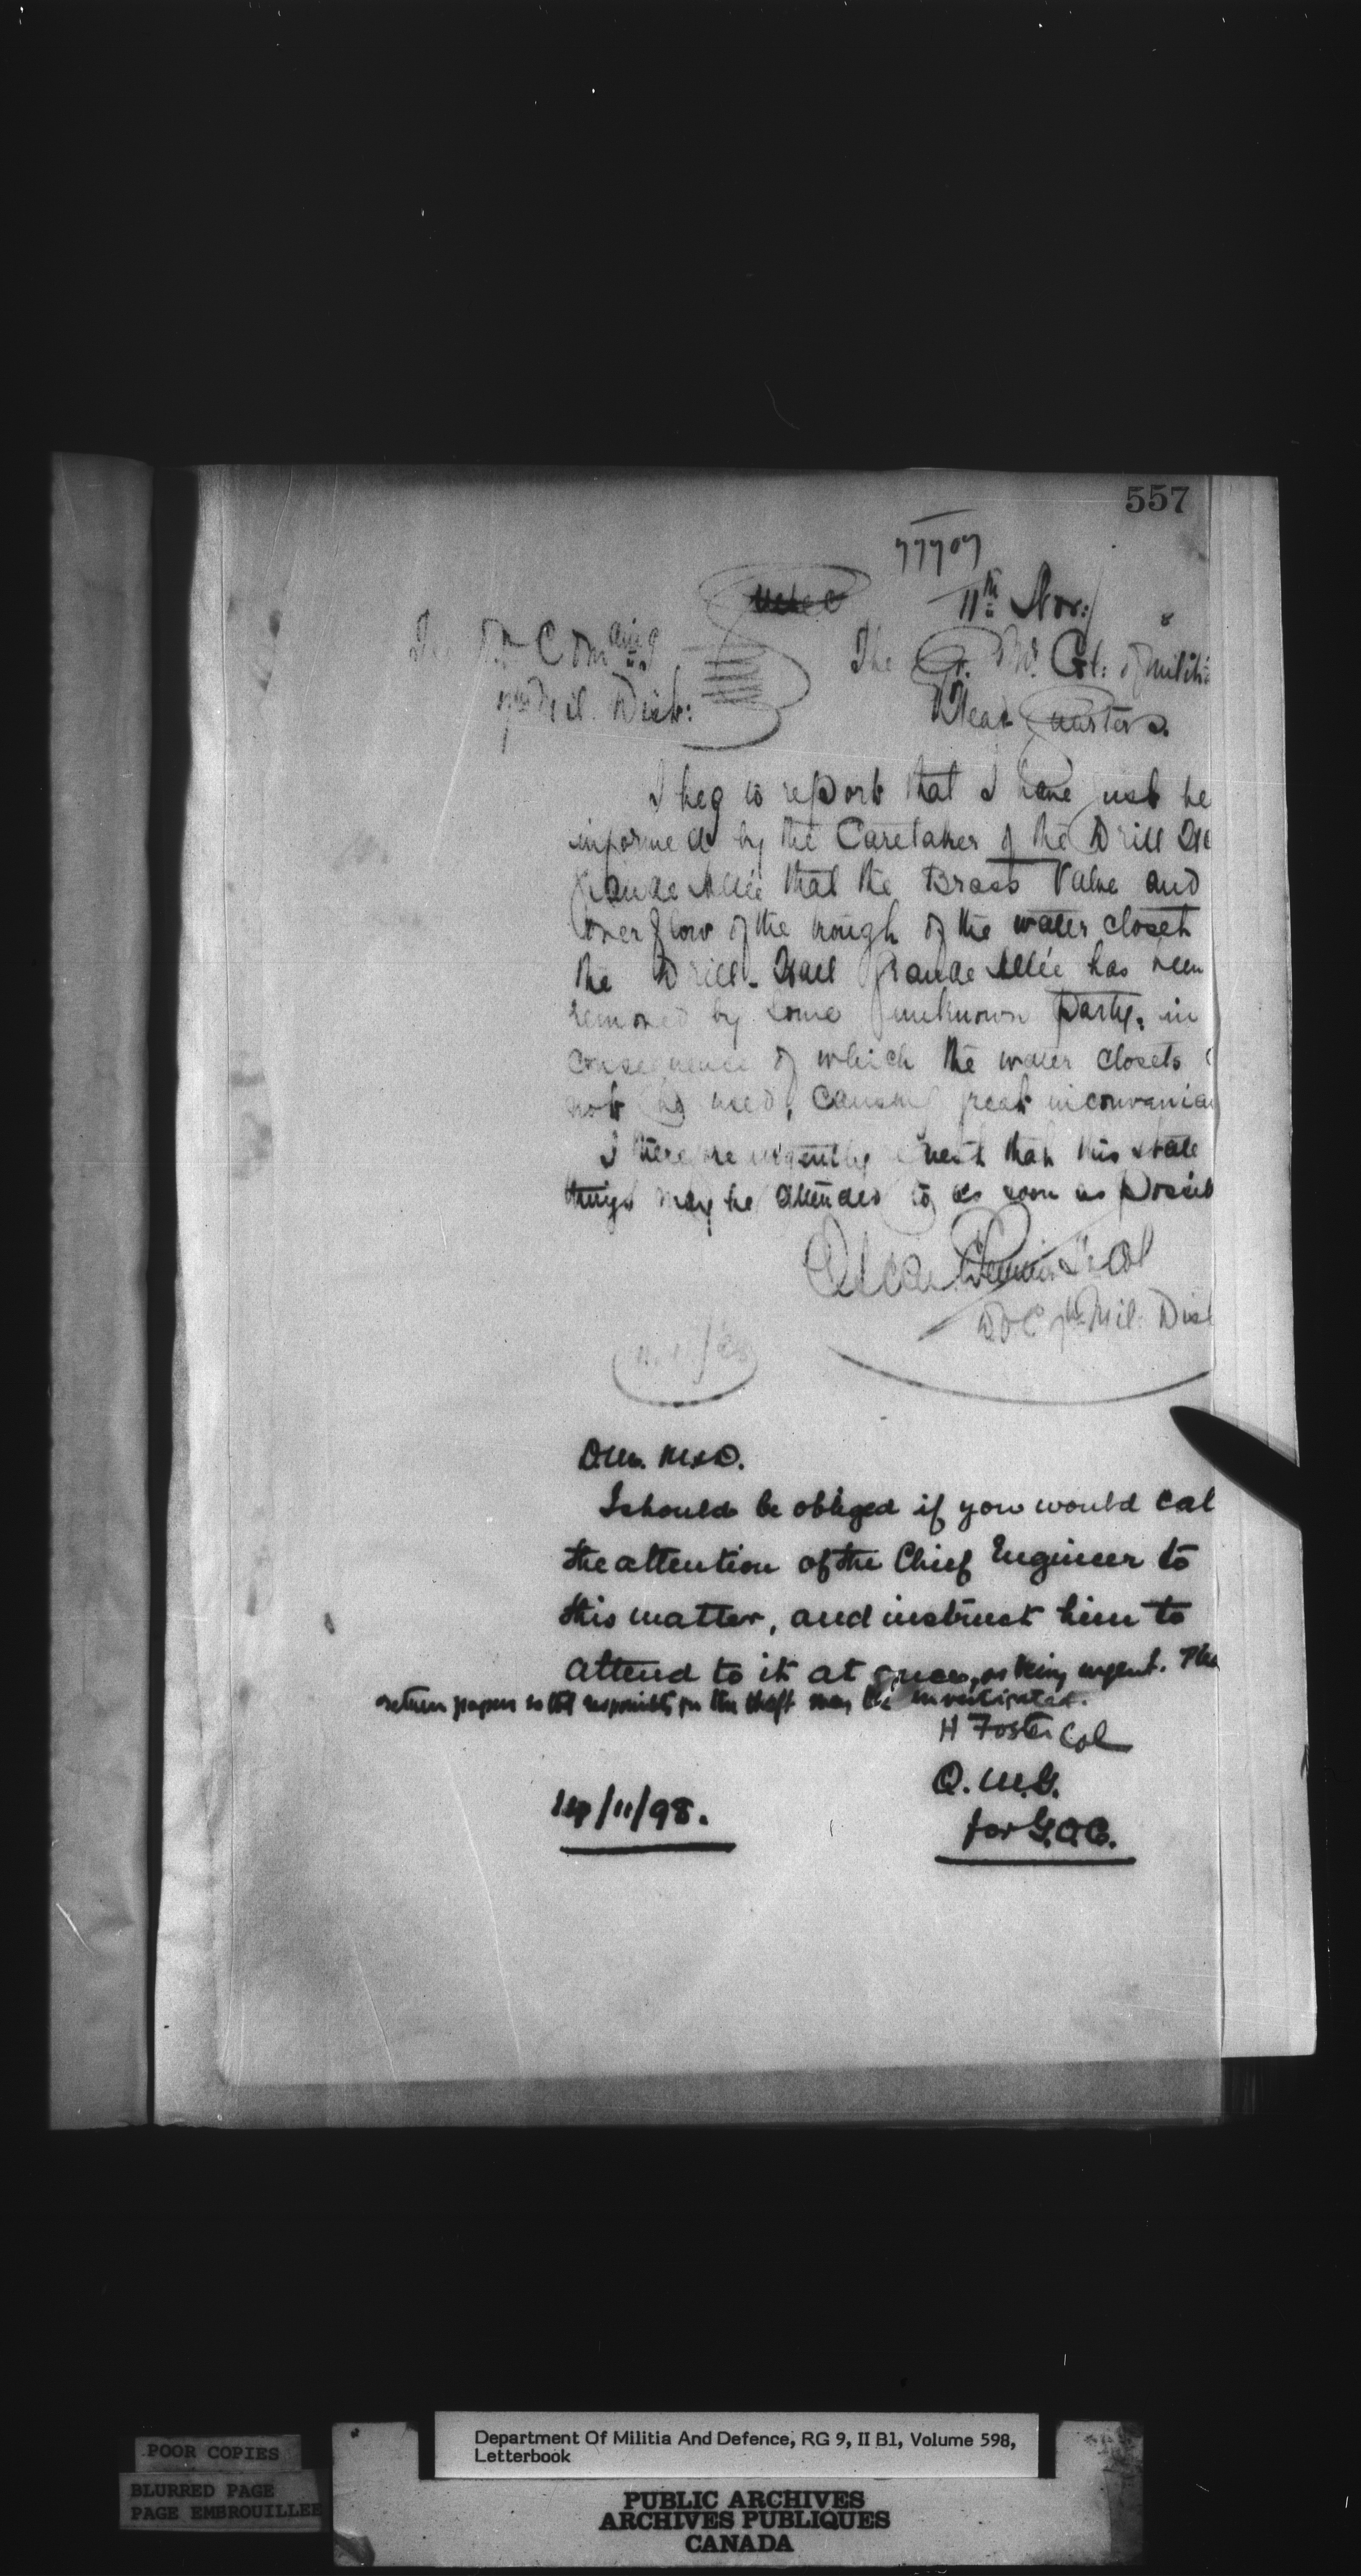 557
77707
11th Nov:/ 8
The
7th Mil. Dist:
The Qr. Mr. Gl: of Militi
Head Quarters.
I beg to report that I have just be
informed by the Caretaker of the Drill
Grande Allée that the Brass Valve and
over flow of the trough of the water closet
the Drill-Hall Grande Allée has been
removed by some unknown party, in
consequence of which the water closets
not be used, causing great inconvenian
I therefore urgently that this state
things may be attended to as soon as Possib
Oscar Lt Col
DOC 7th Mil: Dist
D.M. M&D.
I should be obliged if you would cal
the attention of the Chief Engineer to
this matter, and instruct him to
attend to it at once, as being urgent. Plea
return papers so that responsibility for the theft may be investigated.
H Foster Col
Q.M.G.
for G.O.C.
14/11/98.
Department Of Militia And Defence, RG 9, II B1, Volume 598,
Letterbook
POOR COPIES
BLURRED PAGE
PAGE EMBROUILLEE
PUBLIC ARCHIVES
ARCHIVES PUBLIQUES
CANADA